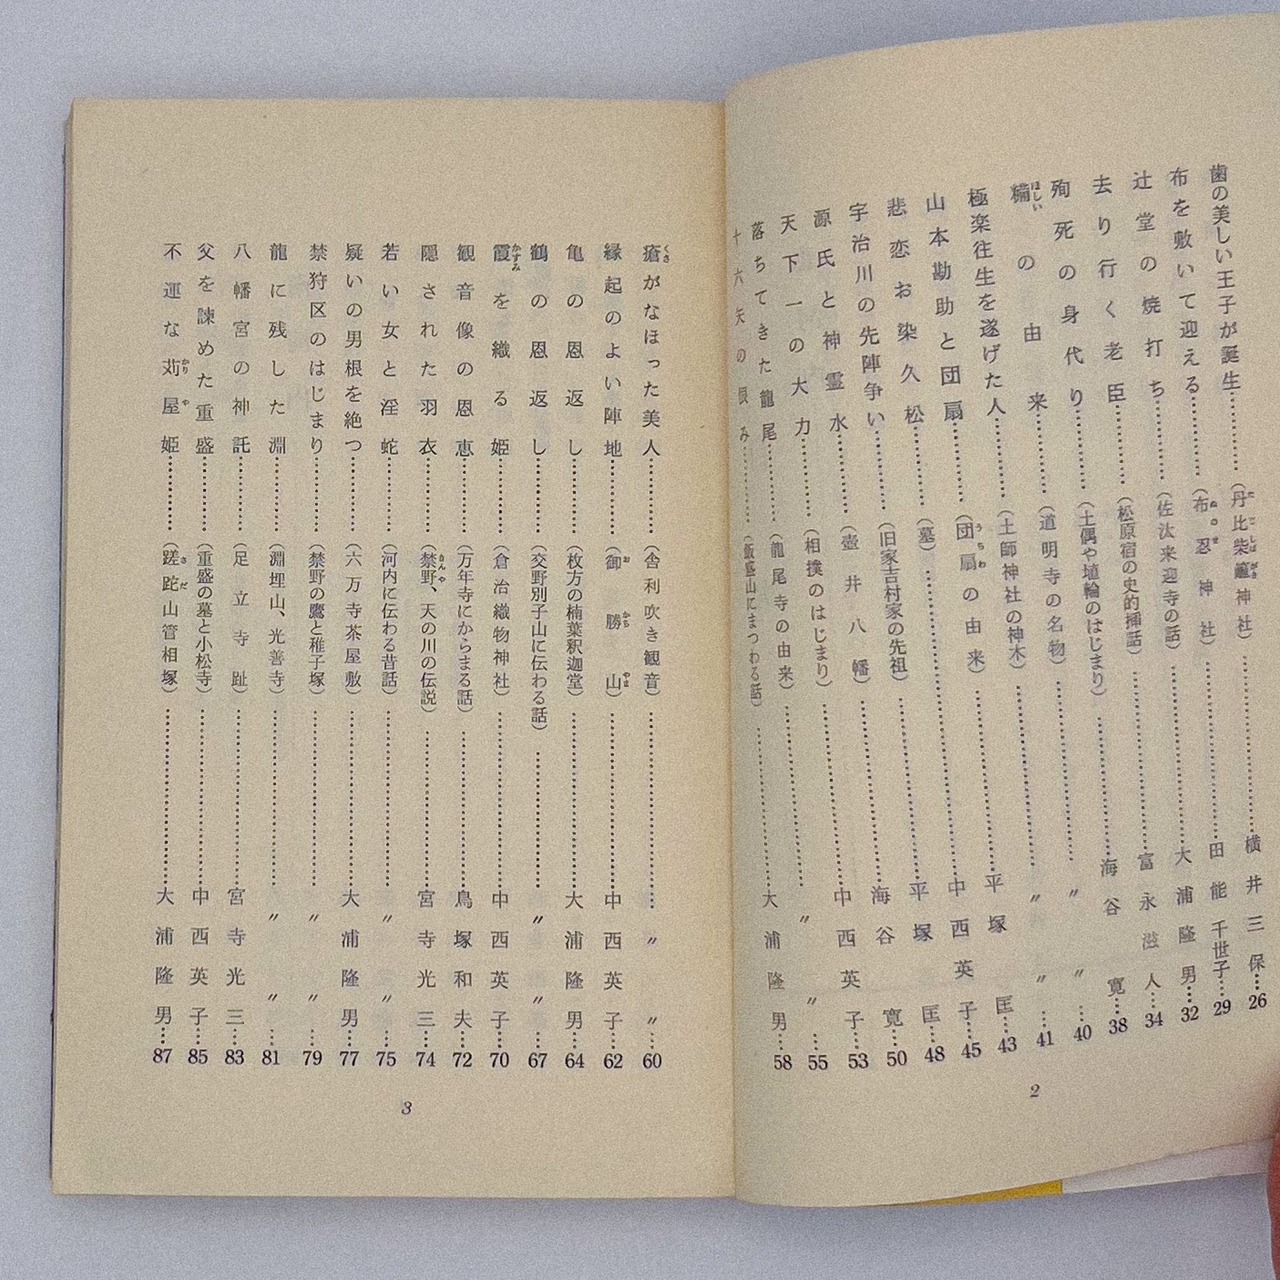 歯の美しい王子が誕生………(丹比柴籬神社)………横井三保…26
布を敷いて迎える………(布忍神社)………田能千世子…29
辻堂の焼打ち………(佐汰来迎寺の話)………大浦隆男…32
去り行く老臣………(松原宿の史的挿話)………富永滋人…34
殉死の身代り………(土偶や埴輪のはじまり)………海谷寛…38
糒の由来………(道明寺の名物)………〃〃…40
極楽往生を遂げた人………(土師神社の神木)………〃〃…41
山本勘助と団扇………(団扇の由来)………平塚匡…43
悲恋お染久松………(墓)………中西英子…45
宇治川の先陣争い………(旧家吉村家の先祖)………平塚匡…48
源氏と神霊水………(壺井八幡)………海谷寛…50
天下一の大力………(相撲のはじまり)………中西英子…53
落ちてきた龍尾………(龍尾寺の由来)………〃〃…55
十六矢の恨み………(飯盛山にまつわる話)………大浦隆男…58
2
瘡がなほった美人………(舎利吹き観音)………〃〃…60
縁起のよい陣地………(御勝山)………中西英子…62
亀の恩返し………(枚方の楠葉釈迦堂)………大浦隆男…64
鶴の恩返し………(交野別子山に伝わる話)………〃〃…67
霞を織る姫………(倉治織物神社)………中西英子…70
観音像の恩恵………(万年寺にからまる話)………鳥塚和夫…72
隠された羽衣………(禁野、天の川の伝説)………宮寺光三…74
若い女と淫蛇………(河内に伝わる昔話)………〃〃…75
疑いの男根を絶つ………(六万寺茶屋敷)………大浦隆男…77
禁狩区のはじまり………(禁野の鷹と稚子塚)………〃〃…79
龍に残した淵………(淵埋山、光善寺)………〃〃…81
八幡宮の神託………(足立寺趾)………宮寺光三…83
父を諌めた重盛………(重盛の墓と小松寺)………中西英子…85
不運な苅屋姫………(蹉跎山管相塚)………大浦隆男…87
3